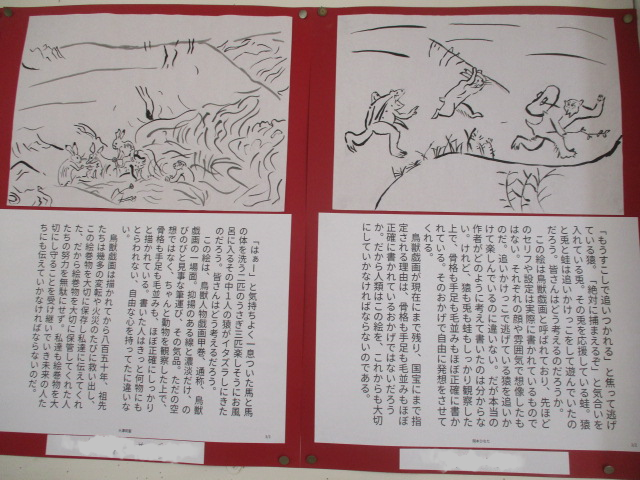 「もうすこしで追いつかれる」と焦って逃げ
ている猿。「絶対に捕まえるぞ」と気合いを
入れている兎。その兎を応援している蛙。猿
と兎と蛙は追いかけっこをして遊んでいたの
だろう。皆さんはどう考えるのだろうか。
この絵は鳥獣戯画と呼ばれており、先ほど
のセリフや設定は実際に書かれているもので
はない。それぞれの顔や雰囲気で想像したも
のだ。追いかけっこで逃げている猿を追いか
けて楽しんでいるのに違いない。だが本当の
作者がどのように考えて書いたのは分からな
い。けれど、猿も兎も蛙もしっかり観察した
上で、骨格も手足も毛並みもほぼ正確に書か
れている。そのおかげで自由に発想をさせて
くれる。
鳥獣戯画が現在にまで残り、国宝にまで指
定される理由は、骨格も手足も毛並みもほぼ
正確に書かれているおかげではないだろう
か。だから人類はこの絵を、これからも大切
にしていかなければならないのである。
「はぁー」と気持ちよく一息ついた馬と馬
の体を洗う二匹のうさぎ三匹楽しそうにお風
呂に入るその中1人の猿がイタズラしにきた
のだろう。皆さんはどう考えるだろう。
この絵は、鳥獣人物戯画甲巻、通称、鳥獣
戯画の一場面。抑揚のある線と濃淡だけ、の
びのびと見事な筆運び、その気品。ただの空
想ではなく、ちゃんと動物を観察した上で、
骨格も手足も毛並みも、ほぼ正確にしっかり
と描かれている。書いた人はきっと何物にも
とらわれない、自由な心を持ってたに違いな
い。
鳥獣戯画は描かれてから八百五十年、祖先
たちは幾多の変転や火災のたびに救い出し、
この絵巻物を大切に保存し私達に伝えてくれ
た、だから絵巻物を大切に保管してくれた人
たちの努力を無駄にせず。私達も絵巻物を大
切にし守ることを受け継いでいき未来の人た
ちにも伝えていかなければならないのだ。